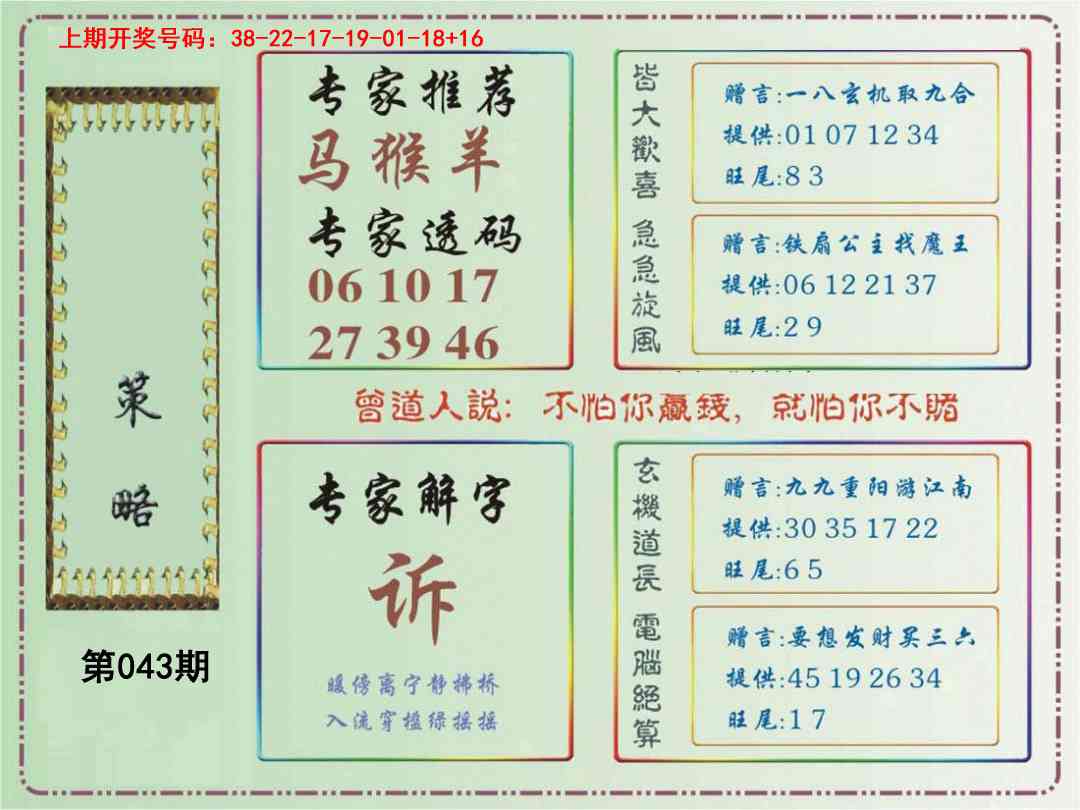 上期开奖号码：38-22-17-19-01-18+16
策略
第043期
专家推荐
马猴羊
专家透码
06 10 17
27 39 46
皆大歡喜
赠言:一八玄机取九合
提供:01 07 12 34
旺尾:8 3
急急旋风
赠言:铁扇公主找魔王
提供:06 12 21 37
旺尾:2 9
曾道人説：不怕你贏錢，就怕你不賭
专家解字
诉
暖傍离宁静拂桥
入流穿槛绿摇摇
玄機道長
赠言:九九重阳游江南
提供:30 35 17 22
旺尾:6 5
電腦絕算
赠言:要想发财买三六
提供:45 19 26 34
旺尾:1 7